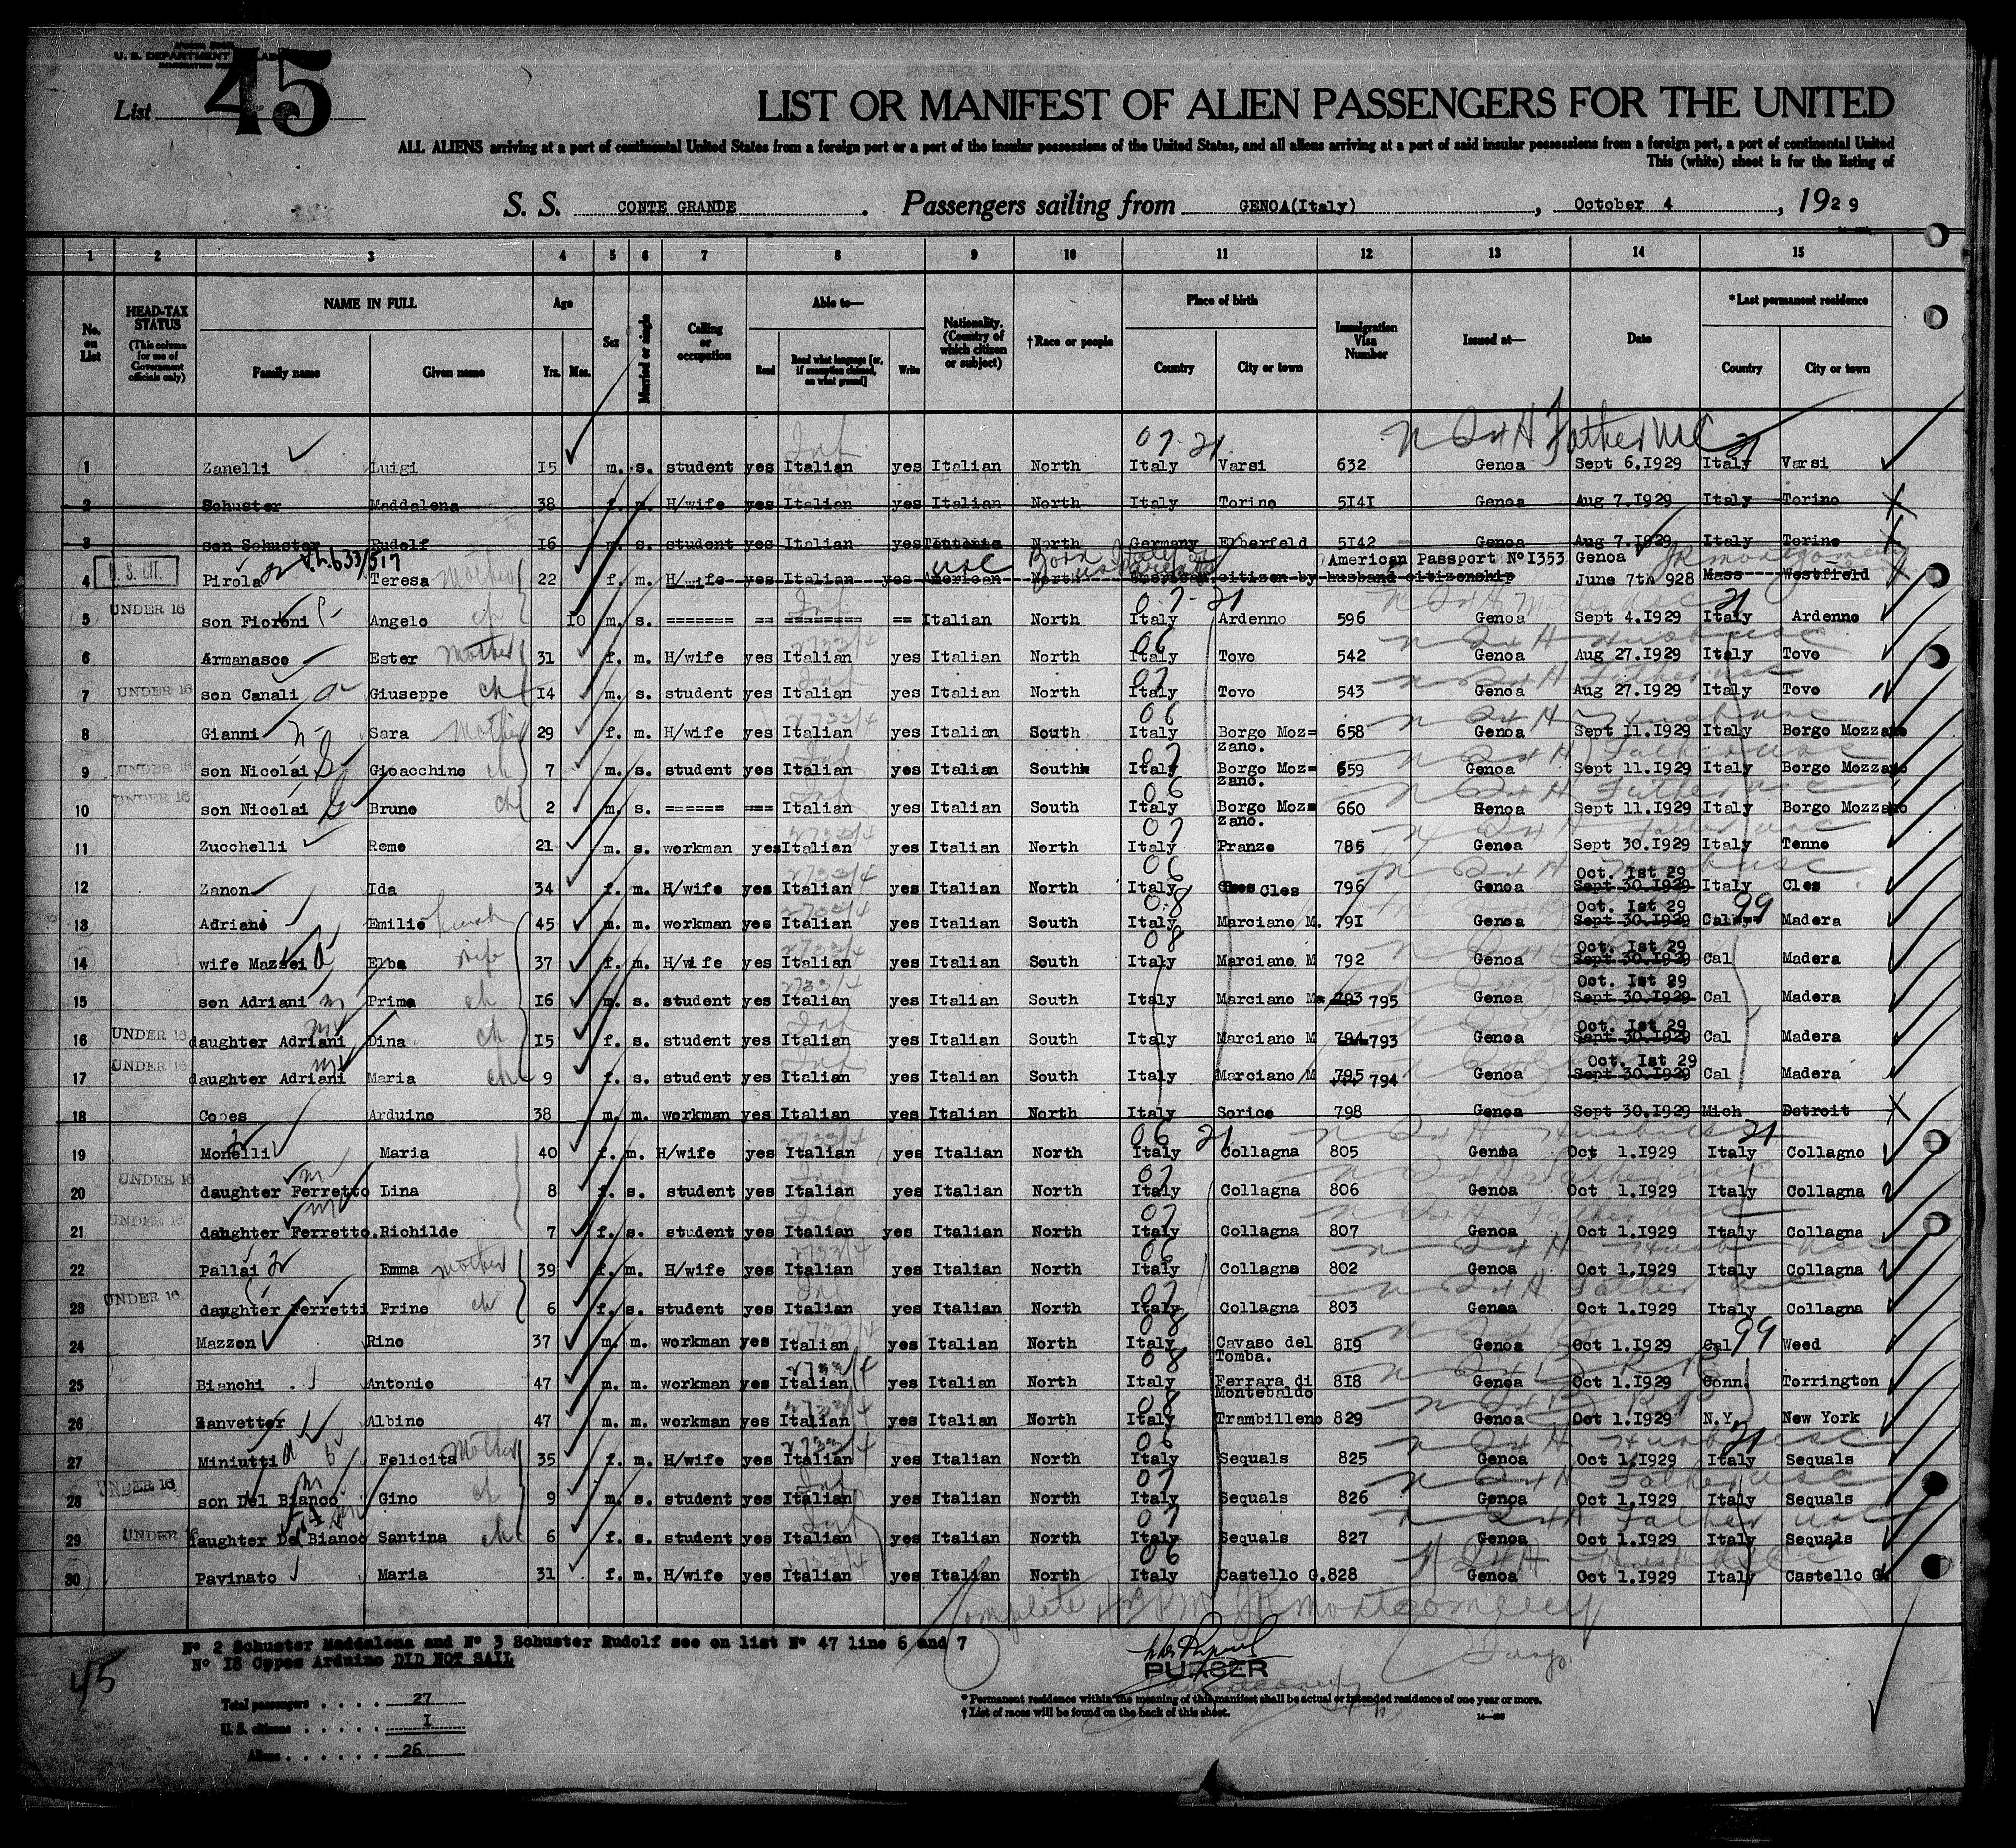 U. S. DEPARTMENT
List 45
LIST OR MANIFEST OF ALIEN PASSENGERS FOR THE UNITED
ALL ALIENS arriving at a port of continental United States from a foreign port or a port of the insular possessions of the United States, and all aliens arriving at a port of said insular possessions from a foreign port, a port of continental United
This (white) sheet is for the listing of
S. S. CONTE GRANDE. Passengers sailing from GENOA(Italy), October 4, 1929
1 2 3 4 5 6 7 8 9 10 11 12 13 14 15
No. on List HEAD-TAX STATUS (This column for use of Government officials only) NAME IN FULL Family name Given name Age Yrs. Mos. Sex Married or single Calling or occupation Able to— Read Read what language [or, if exemption claimed, on what ground] Write Nationality. (Country of which citizen or subject) †Race or people Place of birth Country City or town Immigration Visa Number Issued at— Date *Last permanent residence Country City or town
Father USC
1 Zanelli Luigi 15 m. s. student yes Italian yes Italian North Italy Varsi 632 Genoa Sept 6.1929 Italy Varsi
2 Schuster Maddalena 38 f. m. H/wife yes Italian yes Italian North Italy Torino 5141 Genoa Aug 7.1929 Italy Torino
3 son Schuster Rudolf 16 m. s. student yes Italian yes North Germany Elberfeld 5142 Genoa Aug 7.1929 Italy Torino
American Passport Nº 1353 Genoa
4 U. S. CIT. Pirola Teresa Mother 22 f. m. H/wife yes Italian yes American North American citizen by husband citizenship June 7th 928 Mass Westfield
5 UNDER 16 son Fioroni Angelo ch 10 m. s. ======= == ======== == Italian North Italy Ardenno 596 Genoa Sept 4.1929 Italy Ardenno
6 Armanasco Ester Mother 31 f. m. H/wife yes Italian yes Italian North Italy Tovo 542 Genoa Aug 27.1929 Italy Tovo
7 UNDER 16 son Canali Giuseppe ch 14 m. s. student yes Italian yes Italian North Italy Tovo 543 Genoa Aug 27.1929 Italy Tovo
8 Gianni Sara Mother 29 f. m. H/wife yes Italian yes Italian South Italy Borgo Moz=zano. 658 Genoa Sept 11.1929 Italy Borgo Mozzano
9 UNDER 16 son Nicolai Gioacchino ch 7 m. s. student yes Italian yes Italian South Italy Borgo Moz=zano. 659 Genoa Sept 11.1929 Italy Borgo Mozzano
10 UNDER 16 son Nicolai Bruno ch 2 m. s. ====== === Italian yes Italian South Italy Borgo Moz=zano. 660 Genoa Sept 11.1929 Italy Borgo Mozzano
11 Zucchelli Remo 21 m. s. workman yes Italian yes Italian North Italy Pranzo 785 Genoa Sept 30.1929 Italy Tenno
12 Zanon Ida 34 f. m. H/wife yes Italian yes Italian North Italy Cles 796 Genoa Oct. 1st 29 Sept 30.1929 Italy Cles
13 Adriani Emilio 45 m. m. workman yes Italian yes Italian South Italy Marciano M. 791 Genoa Oct. 1st 29 Sept 30.1929 Cal Madera
14 wife Mazzei Elba wife 37 f. m. H/wife yes Italian yes Italian South Italy Marciano M 792 Genoa Oct. 1st 29 Sept 30.1929 Cal Madera
15 son Adriani Primo ch 16 m. s. student yes Italian yes Italian South Italy Marciano M 793 795 Genoa Oct. 1st 29 Sept 30.1929 Cal Madera
16 UNDER 16 daughter Adriani Dina ch 15 f. s. student yes Italian yes Italian South Italy Marciano M 794 793 Genoa Oct. 1st 29 Sept 30.1929 Cal Madera
17 UNDER 16 daughter Adriani Maria ch 9 f. s. student yes Italian yes Italian South Italy Marciano M 795 794 Genoa Oct. 1st 29 Sept 30.1929 Cal Madera
18 Copes Arduino 38 m. m. workman yes Italian yes Italian North Italy Sorico 798 Genoa Sept 30.1929 Mich Detroit
19 Monelli Maria 40 f. m. H/wife yes Italian yes Italian North Italy Collagna 805 Genoa Oct 1.1929 Italy Collagno
20 UNDER 16 daughter Ferretto Lina 8 f. s. student yes Italian yes Italian North Italy Collagna 806 Genoa Oct 1.1929 Italy Collagna
21 UNDER 16 daughter Ferretto. Richilde 7 f. s. student yes Italian yes Italian North Italy Collagna 807 Genoa Oct 1.1929 Italy Collagna
22 Pallai Emma mother 39 f. m. H/wife yes Italian yes Italian North Italy Collagna 802 Genoa Oct 1.1929 Italy Collagna
23 UNDER 16 daughter Ferretti Frine ch 6 f. s. student yes Italian yes Italian North Italy Collagna 803 Genoa Oct 1.1929 Italy Collagna
24 Mazzon Rino 37 m. m. workman yes Italian yes Italian North Italy Cavaso del Tomba. 819 Genoa Oct 1.1929 Cal Weed
25 Bianchi Antonio 47 m. m. workman yes Italian yes Italian North Italy Ferrara di Montebaldo 818 Genoa Oct 1.1929 Conn. Torrington
26 Zanvetter Albino 47 m. m. workman yes Italian yes Italian North Italy Trambilleno 829 Genoa Oct 1.1929 N.Y. New York
27 Miniutti Felicita Mother 35 f. m. H/wife yes Italian yes Italian North Italy Sequals 825 Genoa Oct 1.1929 Italy Sequals
28 UNDER 16 son Del Bianco Gino ch 9 m. s. student yes Italian yes Italian North Italy Sequals 826 Genoa Oct 1.1929 Italy Sequals
29 UNDER 16 daughter Del Bianco Santina ch 6 f. s. student yes Italian yes Italian North Italy Sequals 827 Genoa Oct 1.1929 Italy Sequals
30 Pavinato Maria 31 f. m. H/wife yes Italian yes Italian North Italy Castello G. 828 Genoa Oct 1.1929 Italy Castello G.
Complete
Nº 2 Schuster Maddalena and Nº 3 Schuster Rudolf see on list Nº 47 line 6 and 7
Nº 18 Copes Arduino DID NOT SAIL
PURSER
45
Total passengers . . . . 27
U. S. citizens . . . . . 1
Aliens . . . . . . 26
* Permanent residence within the meaning of this manifest shall be actual or intended residence of one year or more.
† List of races will be found on the back of this sheet.